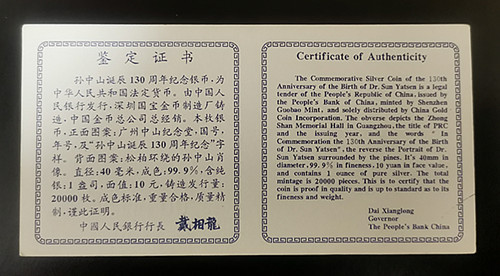 鉴定证书
孙中山诞辰130周年纪念银币,为
中华人民共和国法定货币。由中国人
民银行发行,深圳国宝金币制造厂铸
造,中国金币总公司总经销。本枚银
币,正面图案:广州中山纪念堂,国号,
年号,及“孙中山诞辰130周年纪念”字
样。背面图案:松柏环绕的孙中山肖
像。直径:40毫米,成色:99.9%,含纯
银:1盎司,面值:10元,铸造发行量:
20000枚。成色标准,重量合格,质量精
制,谨此证明。
中國人民銀行行長 戴相龍
Certificate of Authenticity
The Commemorative Silver Coin of the 130th
Anniversary of the Birth of Dr. Sun Yatsen is a legal
tender of the People's Republic of China, issued by
the People's Bank of China, minted by Shenzhen
Guobao Mint, and solely distributed by China Gold
Coin Incorporation. The obverse depicts the Zhong
Shan Memorial Hall in Guangzhou, the title of PRC
and the issuing year, and the words "In
Commemoration the 130th Anniversary of the Birth
of Dr. Sun Yatsen", the reverse the Portrait of Dr.
Sun Yatsen surrounded by the pines. It's 40mm in
diameter, 99.9% in fineness, 10 yuan in face value,
and contains 1 ounce of pure silver. The total
mintage is 20000 pieces. This is to certify that the
coin is proof in quality and is up to standard as to its
fineness and weight.
Dai Xianglong
Governor
The People's Bank China